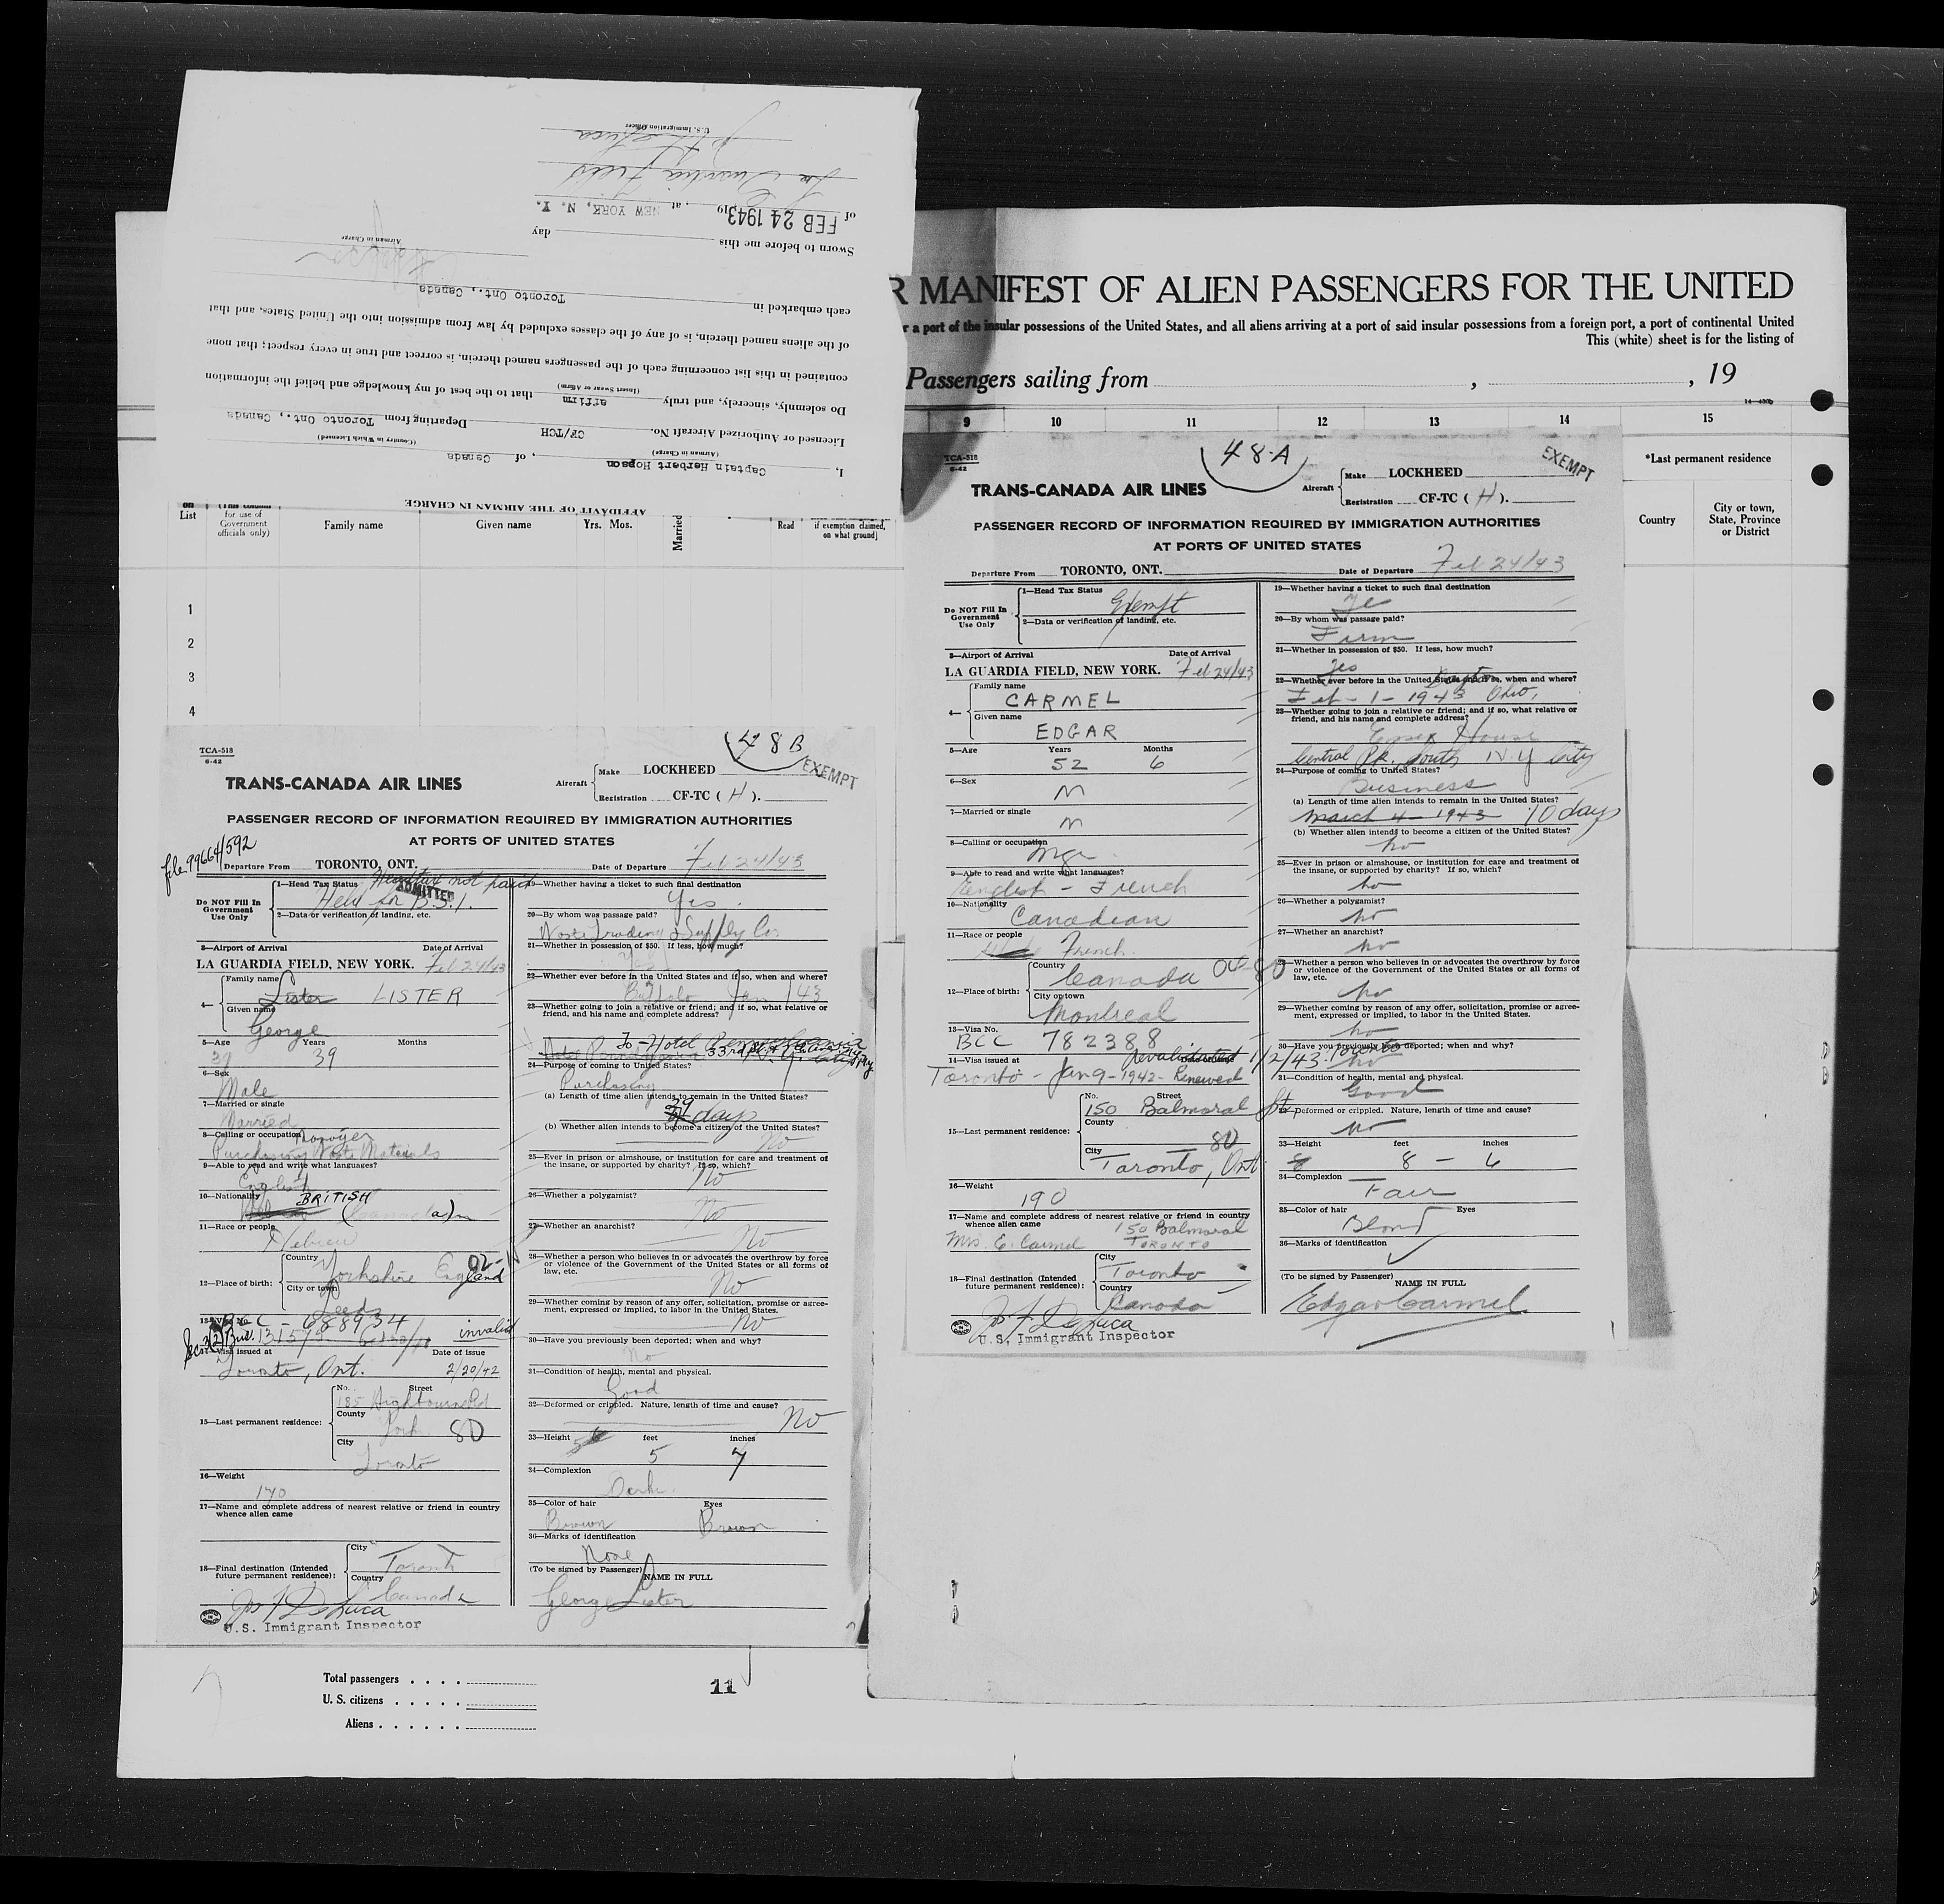 AFFIDAVIT OF THE AIRMAN IN CHARGE
I, Captain Herbert Hopson, of Canada
(Airman in Charge) (Country in Which Licensed)
Licensed or Authorized Aircraft No. CF/TCH Departing from Toronto Ont., Canada
Do solemnly, sincerely, and truly affirm that to the best of my knowledge and belief the information
(Insert Swear or Affirm)
contained in this list concerning each of the passengers named therein, is correct and true in every respect; that none
of the aliens named therein, is of any of the classes excluded by law from admission into the United States, and that
each embarked in Toronto Ont., Canada
Airman in Charge
Sworn to before me this day
of FEB 24 1943 19 , at NEW YORK, N. Y.
La Guardia Field
U.S. Immigration Officer
R MANIFEST OF ALIEN PASSENGERS FOR THE UNITED
r a port of the insular possessions of the United States, and all aliens arriving at a port of said insular possessions from a foreign port, a port of continental United
This (white) sheet is for the listing of
Passengers sailing from , , 19
9 10 11 12 13 14 15
*Last permanent residence
Country
City or town, State, Province or District
on List
for use of Government officials only)
Family name
Given name
Yrs. Mos.
Married
Read
if exemption claimed, on what ground]
1
2
3
4
TCA-518
6-42
48B
EXEMPT
TRANS-CANADA AIR LINES
Aircraft Make LOCKHEED
Registration CF-TC ( H ).
PASSENGER RECORD OF INFORMATION REQUIRED BY IMMIGRATION AUTHORITIES
AT PORTS OF UNITED STATES
file 99664/592
Departure From TORONTO, ONT. Date of Departure Feb 24/43
Do NOT Fill In Government Use Only
1—Head Tax Status Head tax not paid
ADMITTED
Held for B.S.I.
2—Data or verification of landing, etc.
3—Airport of Arrival Date of Arrival
LA GUARDIA FIELD, NEW YORK. Feb 24/43
4— Family name Lister LISTER
Given name George
5—Age Years Months
39 39
6—Sex
Male
7—Married or single
Married
8—Calling or occupation
Purchasing Waste Materials
9—Able to read and write what languages?
English
10—Nationality BRITISH
(Canada)
11—Race or people
Hebrew
12—Place of birth: Country Yorkshire England 02-
City or town Leeds
13—Visa No. C - 688934
invalid
14—Visa issued at Date of issue
Toronto, Ont. 2/20/42
15—Last permanent residence: No. Street
185 Highbourne Rd
County York 80
City Toronto
16—Weight
140
17—Name and complete address of nearest relative or friend in country whence alien came
18—Final destination (Intended future permanent residence): City Toronto
Country Canada
Jos F DeLuca
U.S. Immigrant Inspector
19—Whether having a ticket to such final destination
Yes
20—By whom was passage paid?
Waste Trading & Supply Co.
21—Whether in possession of $50. If less, how much?
Yes
22—Whether ever before in the United States and if so, when and where?
Buffalo Jan / 43
23—Whether going to join a relative or friend; and if so, what relative or friend, and his name and complete address?
To - Hotel Pennsylvania
24—Purpose of coming to United States?
Purchasing
(a) Length of time alien intends to remain in the United States?
29 days
(b) Whether alien intends to become a citizen of the United States?
No
25—Ever in prison or almshouse, or institution for care and treatment of the insane, or supported by charity? If so, which?
No
26—Whether a polygamist?
No
27—Whether an anarchist?
No
28—Whether a person who believes in or advocates the overthrow by force or violence of the Government of the United States or all forms of law, etc.
No
29—Whether coming by reason of any offer, solicitation, promise or agreement, expressed or implied, to labor in the United States.
No
30—Have you previously been deported; when and why?
No
31—Condition of health, mental and physical.
Good
32—Deformed or crippled. Nature, length of time and cause?
No
33—Height feet inches
5 7
34—Complexion
Dark
35—Color of hair Eyes
Brown Brown
36—Marks of identification
None
(To be signed by Passenger) NAME IN FULL
George Lister
Total passengers
U. S. citizens
Aliens
11
TCA-518
6-42
48-A
EXEMPT
TRANS-CANADA AIR LINES
Aircraft Make LOCKHEED
Registration CF-TC ( H ).
PASSENGER RECORD OF INFORMATION REQUIRED BY IMMIGRATION AUTHORITIES
AT PORTS OF UNITED STATES
Departure From TORONTO, ONT. Date of Departure Feb 24/43
Do NOT Fill In Government Use Only
1—Head Tax Status
Exempt
2—Data or verification of landing, etc.
3—Airport of Arrival Date of Arrival
LA GUARDIA FIELD, NEW YORK. Feb 24/43
4— Family name CARMEL
Given name EDGAR
5—Age Years Months
52 6
6—Sex
M
7—Married or single
M
8—Calling or occupation
Mgr
9—Able to read and write what languages?
English - French
10—Nationality
Canadian
11—Race or people
French
12—Place of birth: Country Canada 04-80
City or town Montreal
13—Visa No.
BCC 782388
14—Visa issued at Date of issue
Revalidated 1/2/43 Toronto
Toronto - Jan 9 - 1942 - Renewed
15—Last permanent residence: No. Street
150 Balmoral St.
County 80
City Toronto, Ont
16—Weight
190
17—Name and complete address of nearest relative or friend in country whence alien came
150 Balmoral
Mrs. E. Carmel TORONTO
18—Final destination (Intended future permanent residence): City Toronto
Country Canada
Jos F DeLuca
U.S. Immigrant Inspector
19—Whether having a ticket to such final destination
20—By whom was passage paid?
Firm
21—Whether in possession of $50. If less, how much?
Yes
22—Whether ever before in the United States and if so, when and where?
Feb - 1 - 1943 Dayton Ohio,
23—Whether going to join a relative or friend; and if so, what relative or friend, and his name and complete address?
Essex House
Central Pk. South N.Y City
24—Purpose of coming to United States?
Business
(a) Length of time alien intends to remain in the United States?
March 4 - 1943 10 days
(b) Whether alien intends to become a citizen of the United States?
no
25—Ever in prison or almshouse, or institution for care and treatment of the insane, or supported by charity? If so, which?
no
26—Whether a polygamist?
no
27—Whether an anarchist?
no
28—Whether a person who believes in or advocates the overthrow by force or violence of the Government of the United States or all forms of law, etc.
no
29—Whether coming by reason of any offer, solicitation, promise or agreement, expressed or implied, to labor in the United States.
no
30—Have you previously been deported; when and why?
no
31—Condition of health, mental and physical.
Good
32—Deformed or crippled. Nature, length of time and cause?
no
33—Height feet inches
8 - 6
34—Complexion
Fair
35—Color of hair Eyes
Blond
36—Marks of identification
(To be signed by Passenger) NAME IN FULL
Edgar Carmel